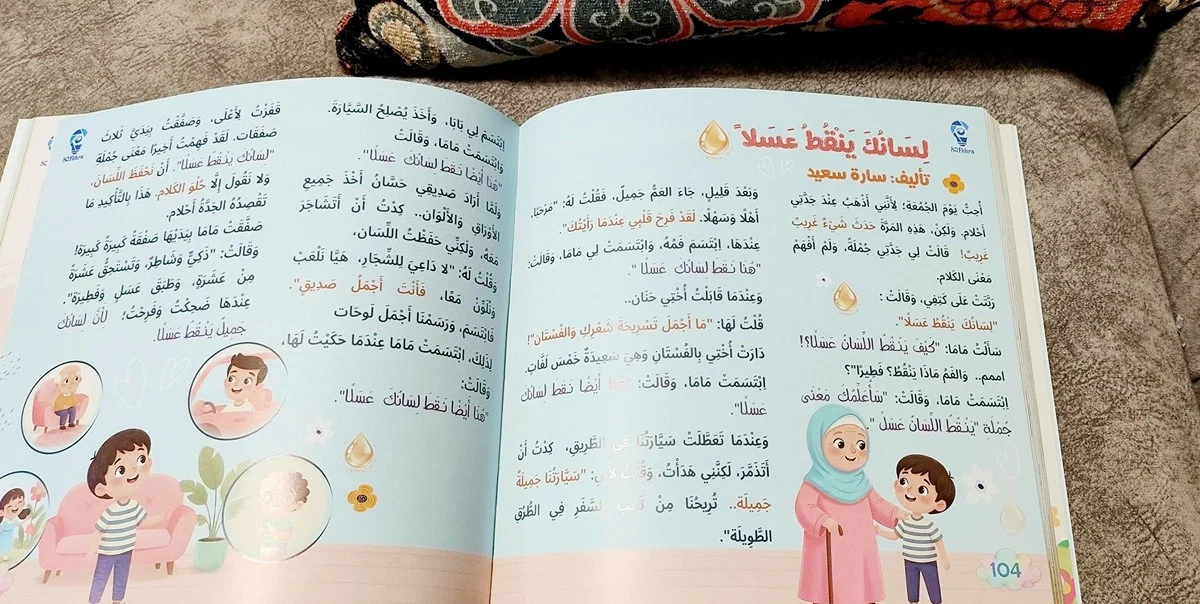 لِسَانُكَ يَنْقُطُ عَسَلاً
تأليف: سارة سعيد
SOFekra
أُحِبُّ يَوْمَ الجُمُعَةِ؛ لِأَنَّنِي أَذْهَبُ عِنْدَ جَدَّتِي
أَحْلَام. وَلَكِنْ، هَذِهِ المَرَّةَ حَدَثَ شَيْءٌ غَرِيبٌ
غَرِيبٌ! قَالَتْ لِي جَدَّتِي جُمْلَةً، وَلَمْ أَفْهَمْ
مَعْنَى الكَلَام.
رَبَّتَتْ عَلَى كَتِفِي، وَقَالَتْ :
"لِسَانُكَ يَنْقُطُ عَسَلًا".
سَأَلْتُ مَامَا: "كَيْفَ يَنْقُطُ اللِّسَانُ عَسَلًا؟!
امم.. وَالفَمُ مَاذَا يَنْقُطُ؟ فَطِيرًا"؟
اِبْتَسَمَتْ مَامَا، وَقَالَتْ: "سَأُعَلِّمُكَ مَعْنَى
جُمْلَةِ "يَنْقُطُ اللِّسَانُ عَسَلً ".
وَبَعْدَ قَلِيلٍ، جَاءَ العَمُّ جَمِيلٌ، فَقُلْتُ لَهُ: "مَرْحَبًا،
أَهْلًا وَسَهْلًا. لَقَدْ فَرِحَ قَلْبِي عِنْدَمَا رَأَيْتُكَ".
عِنْدَهَا، ابْتَسَمَ فَمُهُ، وَابْتَسَمَتْ لِي مَامَا، وَقَالَتْ:
"هُنَا نَقَطَ لِسَانُكَ عَسَلًا ".
وَعِنْدَمَا قَابَلْتُ أُخْتِي حَنَان..
قُلْتُ لَهَا: "مَا أَجْمَلَ تَسْرِيحَةَ شَعْرِكِ وَالفُسْتَان"!
دَارَتْ أُخْتِي بِالفُسْتَانِ وَهِيَ سَعِيدَةٌ خَمْسَ لَفَّاتٍ.
اِبْتَسَمَتْ مَامَا، وَقَالَتْ: "هُنَا أَيْضًا نَقَطَ لِسَانُكَ
عَسَلًا".
وَعِنْدَمَا تَعَطَّلَتْ سَيَّارَتُنَا فِي الطَّرِيقِ، كِدْتُ أَنْ
أَتَذَمَّرَ، لَكِنَّنِي هَدَأْتُ، وَقُلْتُ لِأَبِي: "سَيَّارَتُنَا جَمِيلَةٌ
جَمِيلَة.. تُرِيحُنَا مِنْ تَعَبِ السَّفَرِ فِي الطُّرُقِ
الطَّوِيلَة".
104
ابْتَسَمَ لِي بَابَا، وَأَخَذَ يُصْلِحُ السَّيَّارَةَ.
وَابْتَسَمَتْ مَامَا، وَقَالَتْ
"هُنَا أَيْضًا نَقَطَ لِسَانُكَ عَسَلًا".
وَلَمَّا أَرَادَ صَدِيقِي حَسَّانُ أَخْذَ جَمِيعِ
الأَوْرَاقِ وَالأَلْوَان.. كِدْتُ أَنْ أَتَشَاجَرَ
مَعَهُ، وَلَكِنِّي حَفَظْتُ اللِّسَان،
وَقُلْتُ لَهُ: "لَا دَاعِيَ لِلشِّجَارِ، هَيَّا نَلْعَبُ
وَنُلَوِّنُ مَعًا، فَأَنْتَ أَجْمَلُ صَدِيقٍ".
فَابْتَسَمَ، وَرَسَمْنَا أَجْمَلَ لَوحَات
لِذَلِكَ، ابْتَسَمَتْ مَامَا عِنْدَمَا حَكَيْتُ لَهَا،
وَقَالَتْ:
"هُنَا أَيْضًا نَقَطَ لِسَانُكَ عَسَلًا".
SOFekra
قَفَزْتُ لِأَعْلَى، وَصَفَّقْتُ بِيَدَيَّ ثَلَاثَ
صَفَقَات. لَقَدْ فَهِمْتُ أَخِيرًا مَعْنَى جُمْلَةِ
"لِسَانُكَ يَنْقُطُ عَسَلًا". أَنْ نَحْفَظَ اللِّسَانَ،
وَلَا نَقُولَ إِلَّا حُلْوَ الكَلَام. هَذَا بِالتَّأْكِيدِ مَا
تَقْصِدُهُ الجَدَّةُ أَحْلَام.
صَفَّقَتْ مَامَا بِيَدَيْهَا صَفْقَةً كَبِيرَةً كَبِيرَة!
وَقَالَتْ: "ذَكِيٌّ وَشَاطِرٌ، وَتَسْتَحِقُّ عَشْرَةً
مِنْ عَشَرَةٍ، وَطَبَقَ عَسَلٍ وَفَطِيرَة".
عِنْدَهَا ضَحِكْتُ وَفَرِحْتُ؛ لِأَنَّ لِسَانَكَ
جَمِيلٌ يَنْقُطُ عَسَلًا.